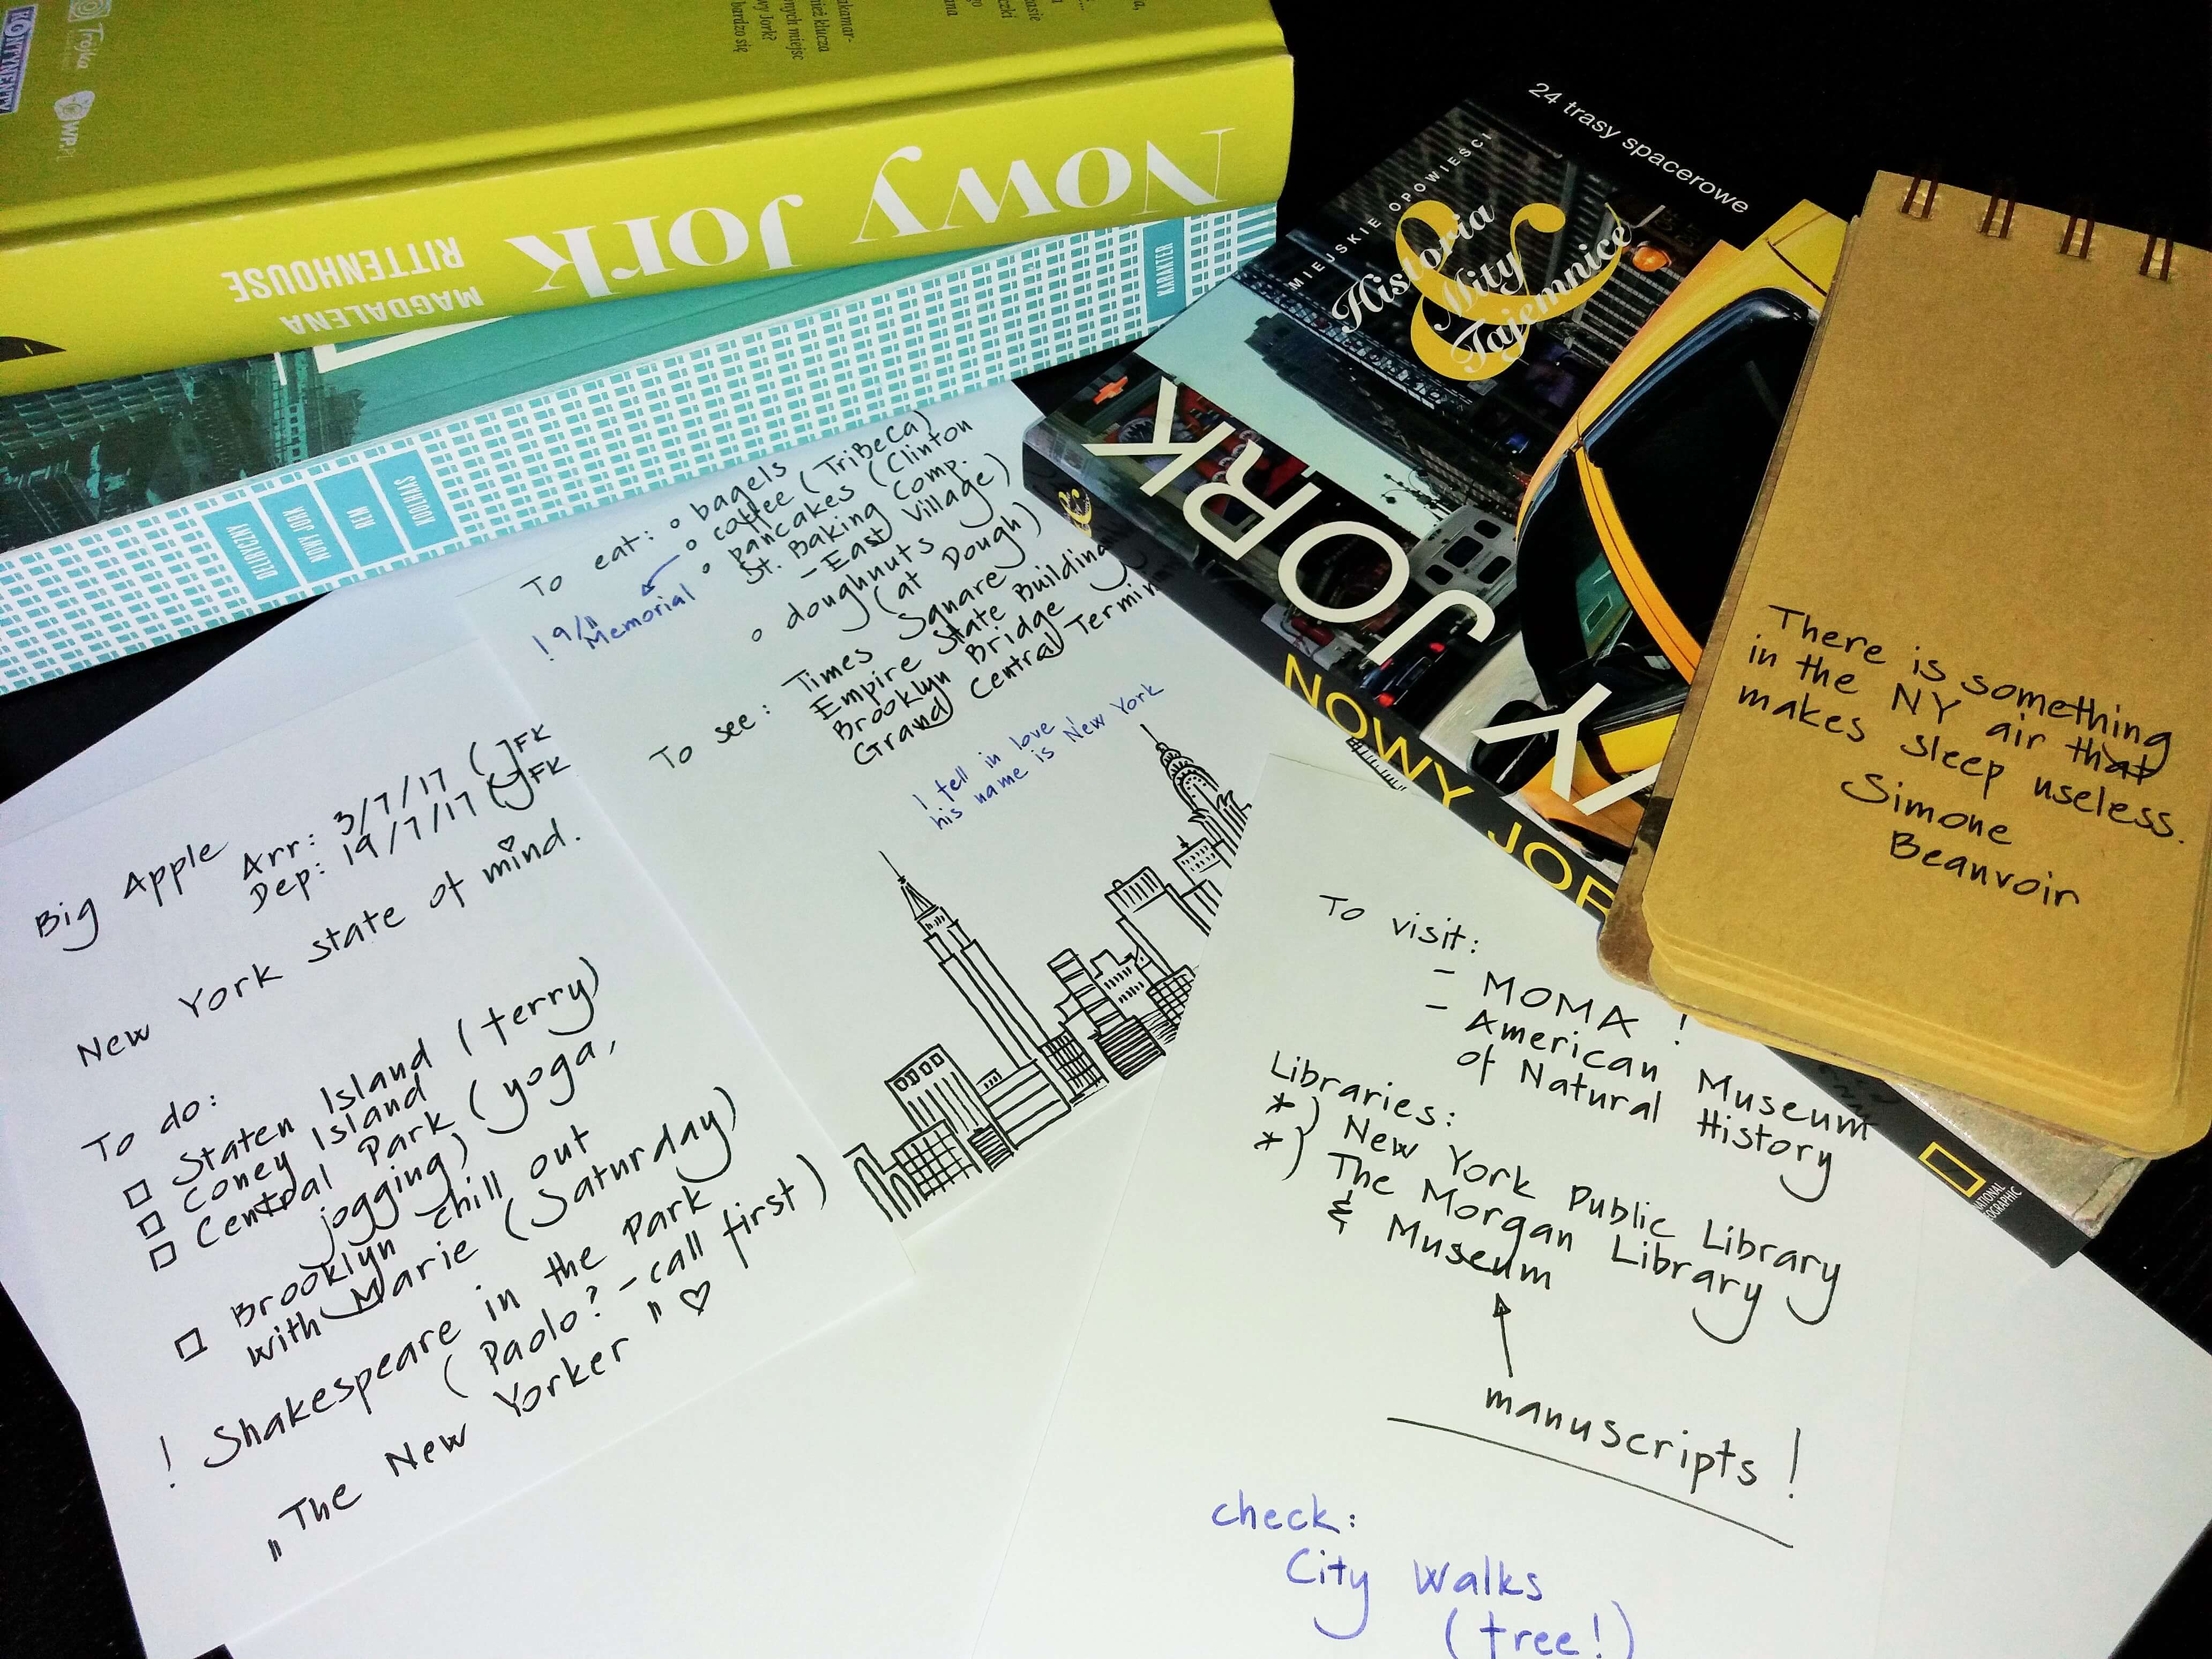 KONTYNENTY
Trójka
WP.PL
Nowy Jork
MAGDALENA
RITTENHOUSE
DELIRYCZNY
NOWY JORK
REM
KOOLHAAS
KARAKTER
24 trasy spacerowe
MIEJSKIE OPOWIEŚCI
Historia
Mity
&
Tajemnice
JORK
Y
NOWY JOR
NATIONAL
GEOGRAPHIC
There is something
in the NY air that
makes sleep useless.
Simone
Beanvoir
To eat: ° bagels
° coffee (TriBeCa)
° pancakes (Clinton
St. Baking Comp.
- East Village)
° doughnuts
(at Dough)
! 9/11
Memorial
To see: Times Square
Empire State Building
Brooklyn Bridge
Grand Central Termin
I fell in love,
his name is New York
Big Apple Arr: 3/7/17 (JFK
Dep: 19/7/17 (JFK
New York state of mind.
To do:
□ Staten Island (ferry)
□ Coney Island
□ Central Park (yoga,
jogging)
□ Brooklyn chill out
with Marie (Saturday)
! Shakespeare in the Park
(Paolo? - call first)
„The New Yorker" ♡
To visit:
- MOMA !
- American Museum
of Natural History
Libraries:
*) New York Public Library
*) The Morgan Library
& Museum
manuscripts!
check:
City Walks
(free!)